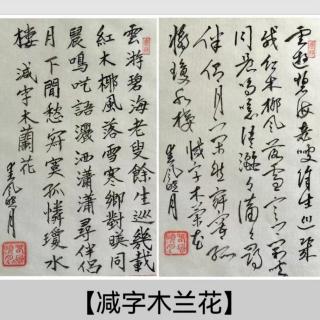 雲游碧海老叟餘生巡幾
載紅木椰風落雪寒鄉對
同晨鳴語洒瀟瀟尋
伴侶月下閒愁寂寞孤
憐瓊水樓 減字木蘭花
風皓月
雲游碧海老叟餘生巡幾載
紅木椰風落雪寒鄉對暎同
晨鳴語洒瀟瀟尋伴侶
月下閒愁寂寞孤憐瓊水
樓 減字木蘭花
風皓月
【减字木兰花】